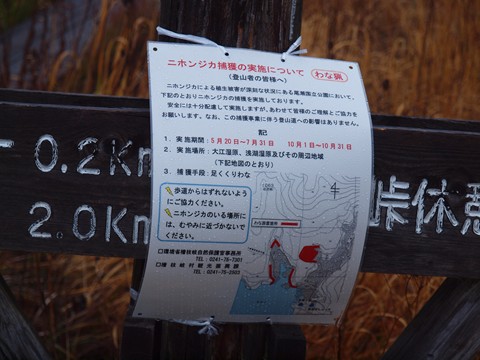 ニホンジカ捕獲の実施について
(登山者の皆様へ)
わな猟
ニホンジカによる植生被害が深刻な状況にある尾瀬国立公園において、
下記のとおりニホンジカの捕獲を実施しております。
安全には十分配慮して実施しますが、あわせて皆様のご理解とご協力を
お願いします。なお、この捕獲事業に伴う登山道への影響はありません。
記
1.実施期間:5月20日~7月31日 10月1日~10月31日
2.実施場所:大江湿原、浅湖湿原及びその周辺地域
(下記地図のとおり)
3.捕獲手段:足くくりわな
歩道からはずれないよう
にご協力ください。
ニホンジカのいる場所に
は、むやみに近づかないで
ください。
わな設置箇所
□環境省檜枝岐自然保護官事務所
TEL:0241-75-7301
□檜枝岐村観光課
TEL:0241-75-2503
0.2Km
2.0Km
峠休憩